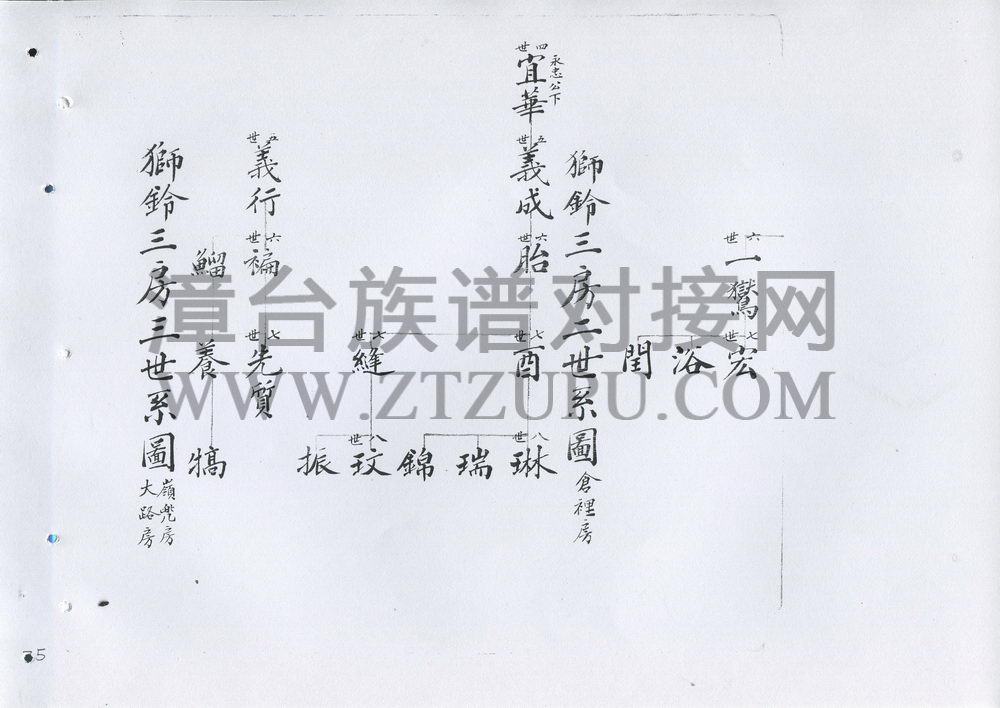 六世
一鸑
七世
宏
浴
閏
獅鈴三房二世系圖 倉裡房
永忠公下
四世
宜華
五世
義成
六世
胎
七世
酉
八世
琳
瑞
錦
六世
縫
八世
玟
振
五世
義行
六世
褊
七世
先質
鰡
養
犒
獅鈴三房三世系圖 嶺兜房
大路房
漳台族谱对接网
WWW.ZTZUPU.COM
35